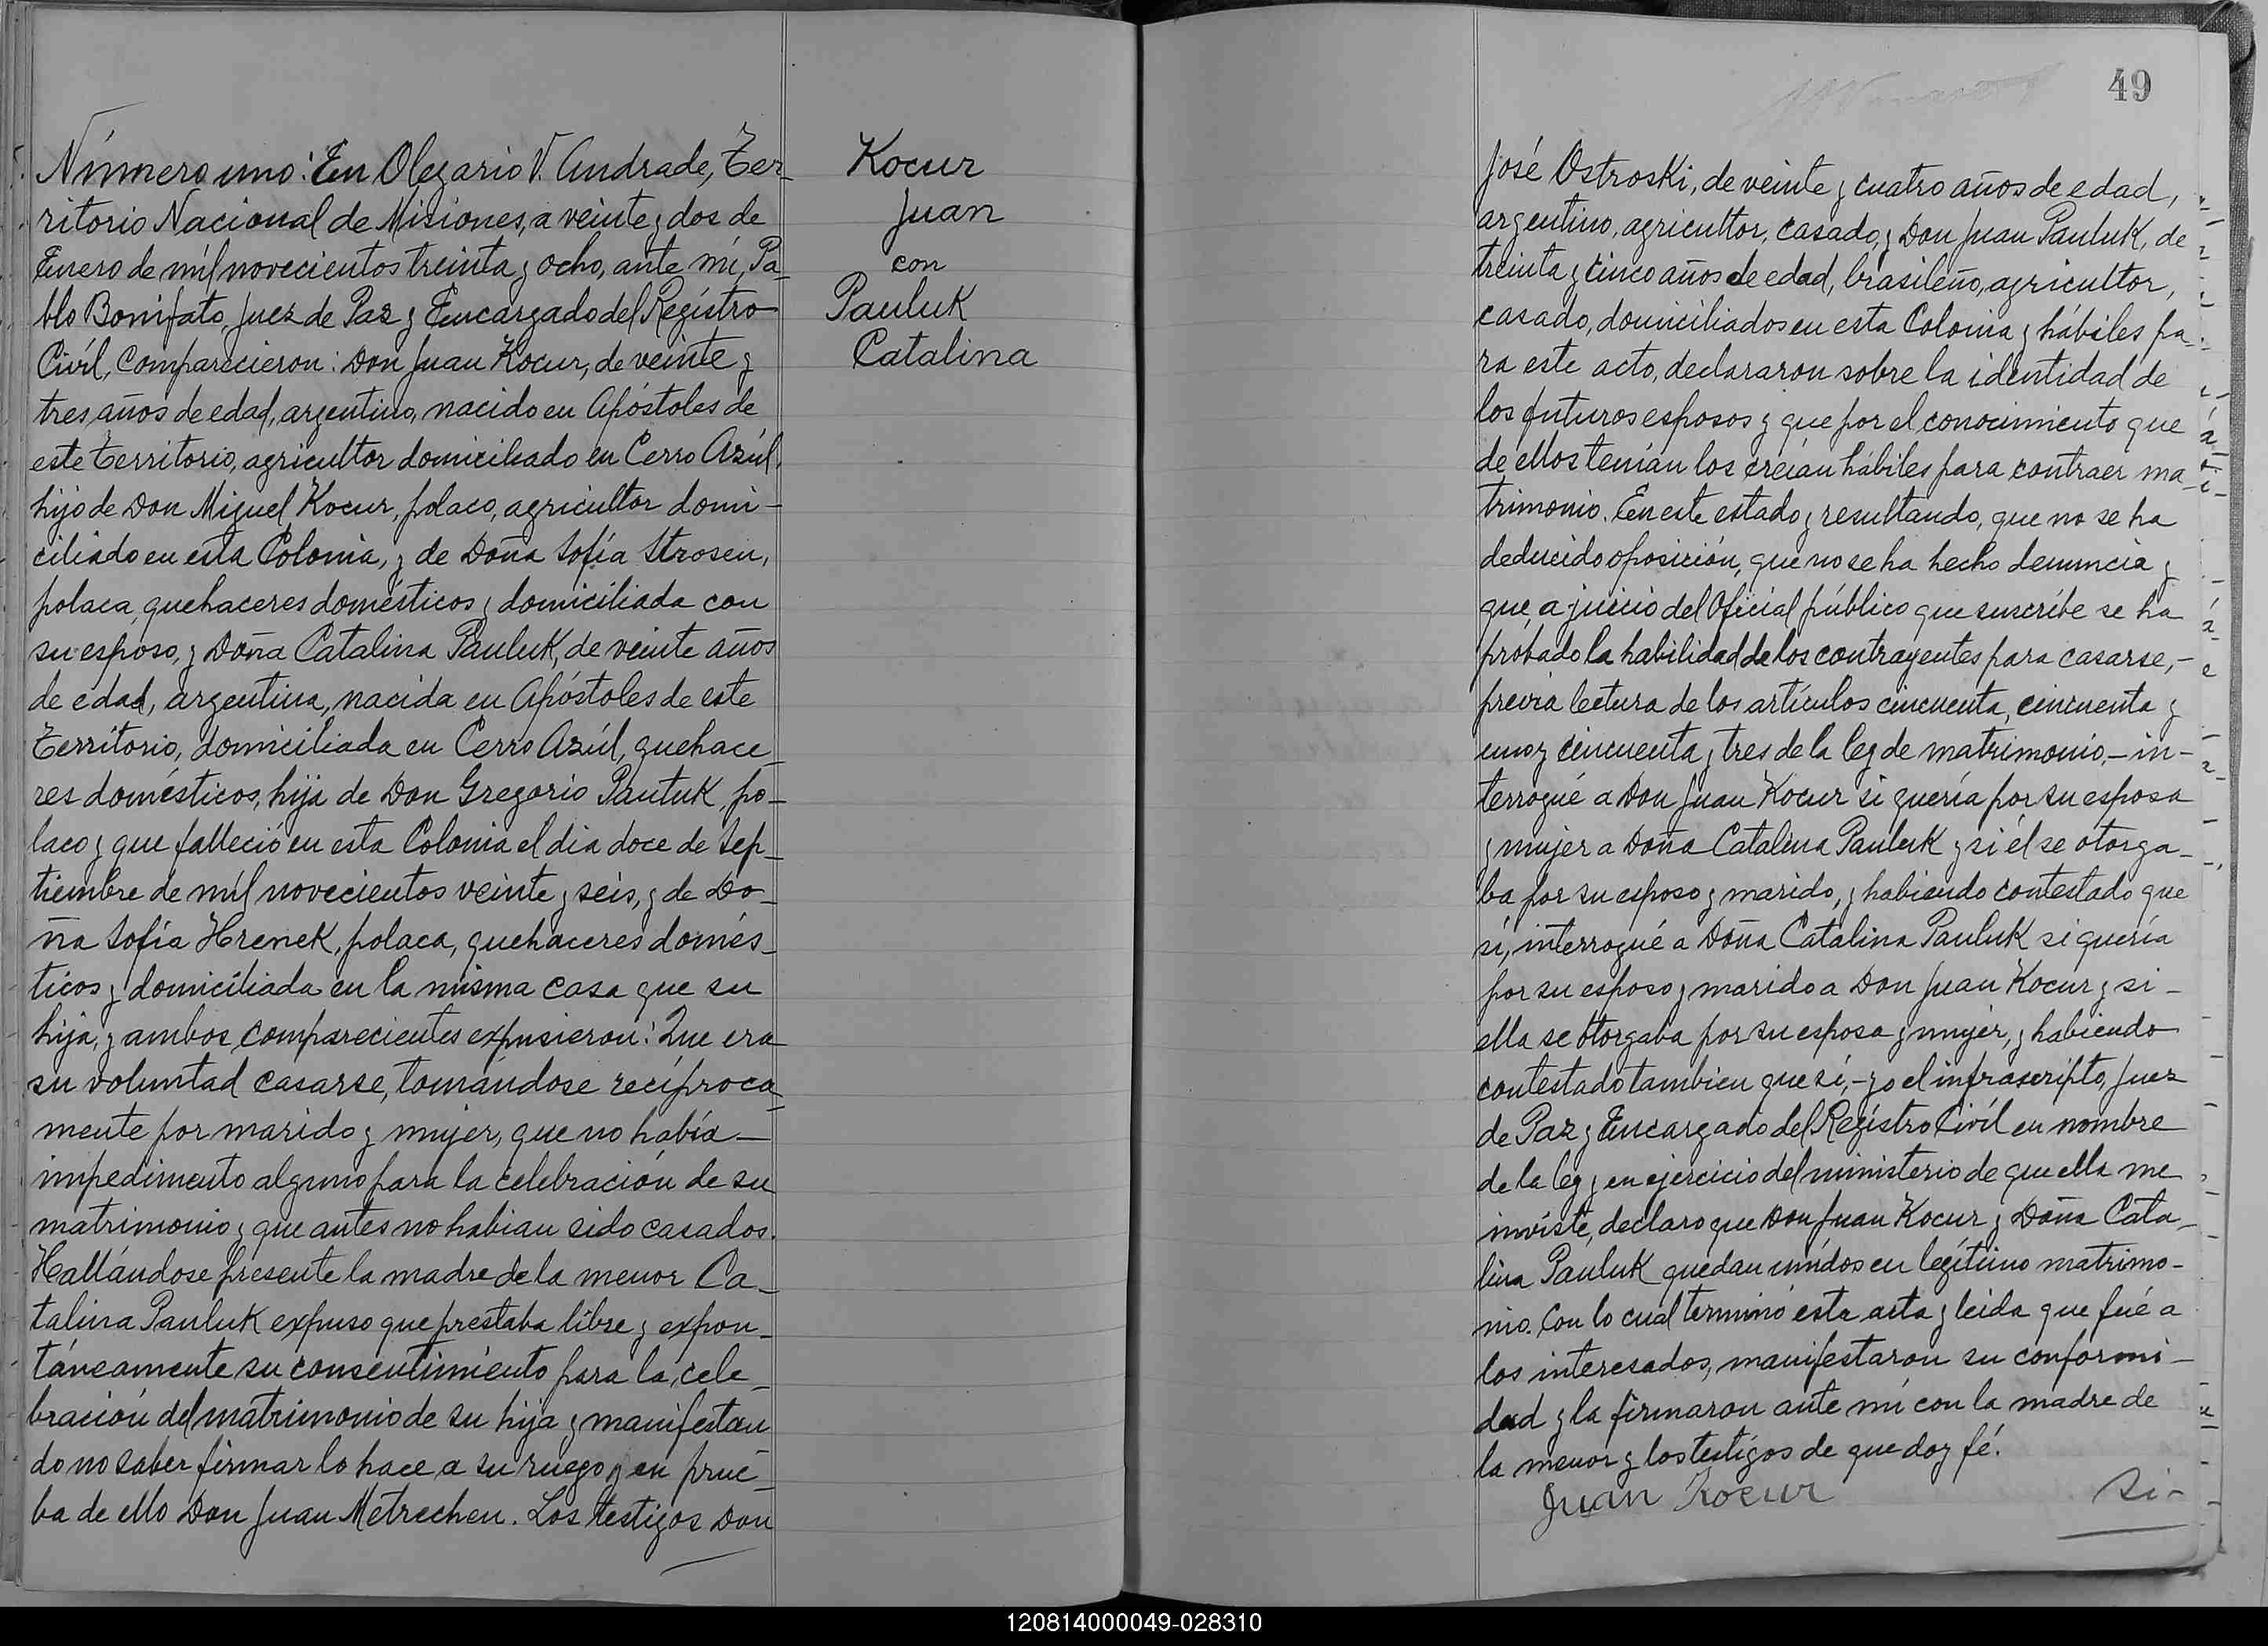 Número uno: En Olegario V. Andrade, Ter-
ritorio Nacional de Misiones, a veinte y dos de
Enero de mil novecientos treinta y ocho, ante mí, Pa-
blo Bonifato, Juez de Paz y Encargado del Registro
Civíl, comparecieron: Don Juan Kocur, de veinte y
tres años de edad, argentino, nacido en Apóstoles de
este Territorio, agricultor domiciliado en Cerro Azúl,
hijo de Don Miguel Kocur, polaco, agricultor domi-
ciliado en esta Colonia, y de Doña Sofía Strosen,
polaca, quehaceres domésticos y domiciliada con
su esposo, y Doña Catalina Pauluk, de veinte años
de edad, argentina, nacida en Apóstoles de este
Territorio, domiciliada en Cerro Azúl, quehace-
res domésticos, hija de Don Gregorio Pauluk, po-
laco y que falleció en esta Colonia el dia doce de Sep-
tiembre de mil novecientos veinte y seis, y de Do-
ña Sofía Hrenek, polaca, quehaceres domés-
ticos y domiciliada en la misma casa que su
hija, y ambos comparecientes expusieron: Que era
su voluntad casarse, tomándose recíproca-
mente por marido y mujer, que no había
impedimento alguno para la celebración de su
matrimonio y que antes no habian sido casados.
Hallándose presente la madre de la menor Ca-
talina Pauluk expuso que prestaba libre y expon-
táneamente su consentimiento para la cele-
bración del matrimonio de su hija y manifestan-
do no saber firmar lo hace a su ruego y en prue-
ba de ello Don Juan Metrechen. Los testigos Don
Kocur
Juan
con
Pauluk
Catalina
49
José Ostroski, de veinte y cuatro años de edad,
argentino, agricultor, casado, y Don Juan Pauluk, de
treinta y cinco años de edad, brasileño, agricultor,
casado, domiciliados en esta Colonia y hábiles pa-
ra este acto, declararon sobre la identidad de
los futuros esposos y que por el conocimiento que
de ellos tenían los creían hábiles para contraer ma-
trimonio. En este estado y resultando, que no se ha
deducido oposición, que no se ha hecho denuncia y
que, a juicio del Oficial público que suscríbe se ha
probado la habilidad de los contrayentes para casarse,-
previa lectura de los artículos cincuenta, cincuenta y
uno y cincuenta y tres de la ley de matrimonio,- in-
terrogué a Don Juan Kocur si quería por su esposa
y mujer a Doña Catalina Pauluk y si él se otorga-
ba por su esposo y marido, y habiendo contestado que
sí, interrogué a Doña Catalina Pauluk si quería
por su esposo y marido a Don Juan Kocur y si
ella se otorgaba por su esposa y mujer, y habiendo
contestado tambien que sí,- yo el infrascripto, Juez
de Paz y Encargado del Registro Civíl en nombre
de la ley y en ejercicio del ministerio de que ella me
inviste, declaro que Don Juan Kocur y Doña Cata-
lina Pauluk quedan unídos en legítimo matrimo-
nio. Con lo cual terminó esta acta y leida que fué a
los interesados, manifestaron su conformi-
dad y la firmaron ante mí con la madre de
la menor y los testígos de que doy fé.
Juan Kocur
Si-
120814000049-028310